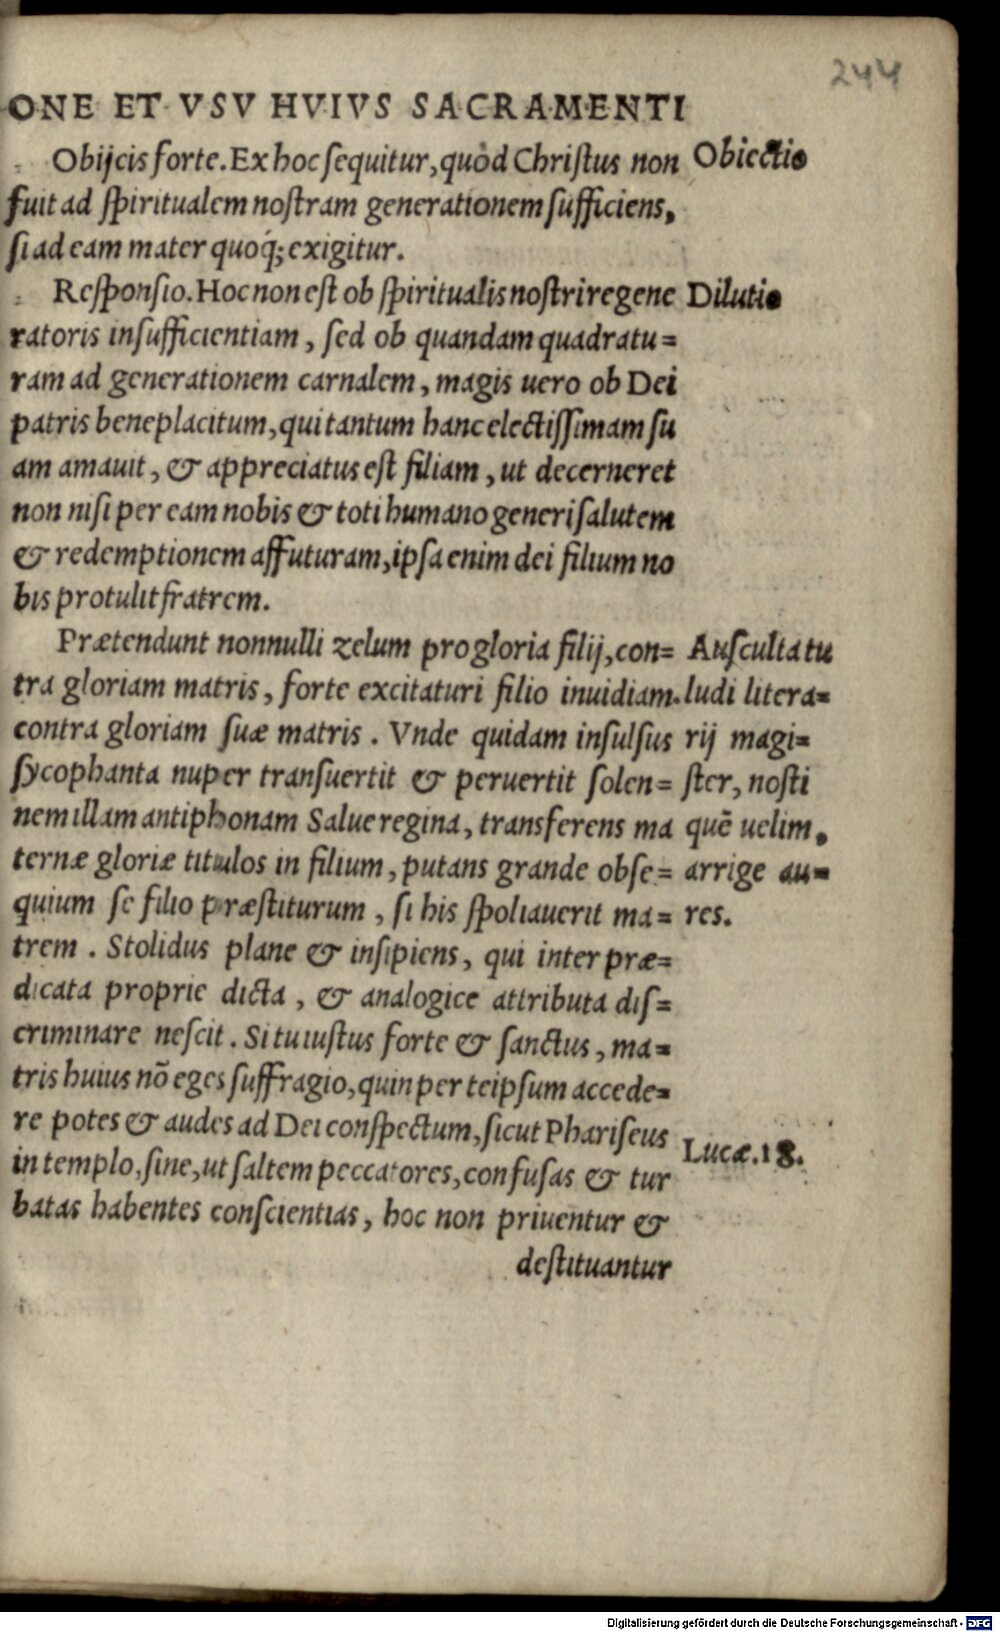 244
ONE ET VSV HVIVS SACRAMENTI
Obijcis forte. Ex hoc ſequitur, quòd Chriſtus non
fuit ad ſpiritualem noſtram generationem ſufficiens,
ſi ad eam mater quoq́; exigitur.
Reſponſio. Hoc non eſt ob ſpiritualis noſtri regene
ratoris inſufficientiam, ſed ob quandam quadratu=
ram ad generationem carnalem, magis uero ob Dei
patris beneplacitum, qui tantum hanc electiſſimam ſu
am amauit, & appreciatus eſt filiam, ut decerneret
non niſi per eam nobis & toti humano generi ſalutem
& redemptionem affuturam, ipſa enim dei filium no
bis protulit fratrem.
Prætendunt nonnulli zelum pro gloria filij, con=
tra gloriam matris, forte excitaturi filio inuidiam
contra gloriam ſuæ matris. Vnde quidam inſulſus
ſycophanta nuper tranſuertit & peruertit ſolen=
nem illam antiphonam Salue regina, transferens ma
ternæ gloriæ titulos in filium, putans grande obſe=
quium ſe filio præſtiturum, ſi his ſpoliauerit ma=
trem. Stolidus plane & inſipiens, qui inter præ=
dicata proprie dicta, & analogice attributa diſ=
criminare neſcit. Si tu iuſtus forte & ſanctus, ma=
tris huius nõ eges ſuffragio, quin per teipſum accede=
re potes & audes ad Dei conſpectum, ſicut Phariſeus
in templo, ſine, ut ſaltem peccatores, confuſas & tur
batas habentes conſcientias, hoc non priuentur &
deſtituantur
Obiectio
Dilutio
Auſculta tu
ludi litera=
rij magi=
ſter, noſti
quē uelim,
arrige au=
res.
Lucæ. 18.
Digitalisierung gefördert durch die Deutsche Forschungsgemeinschaft - DFG